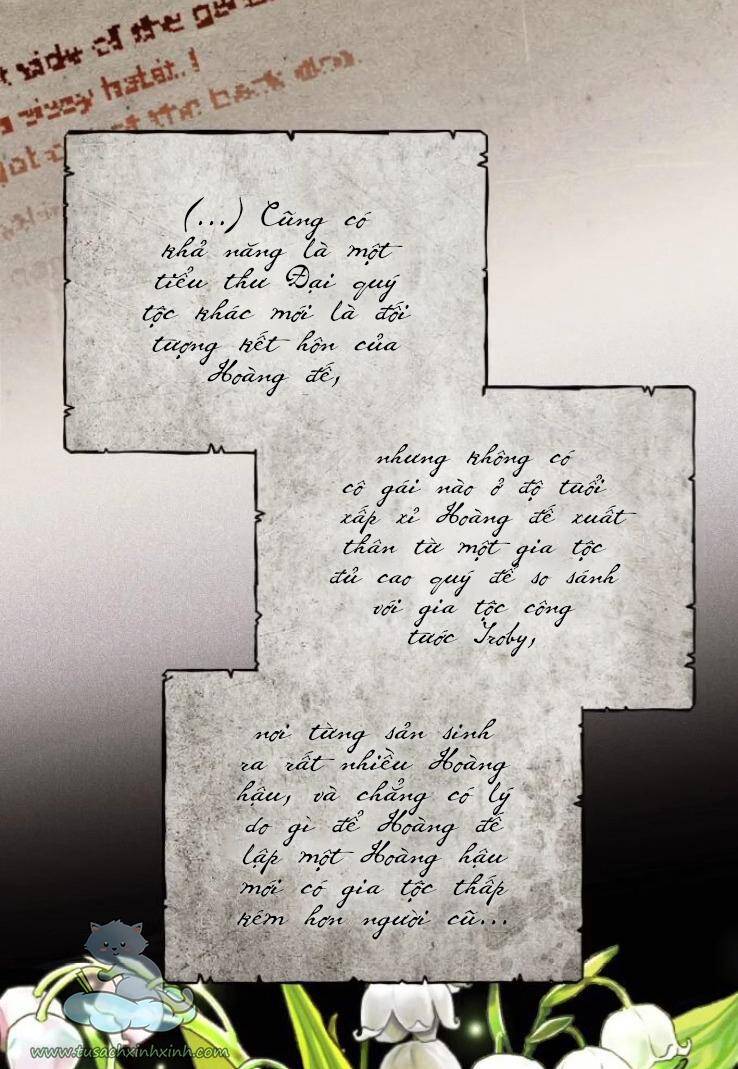 side of the
hatat..!
of the back
(...) Cũng có
khả năng là một
tiểu thư Đại quý
tộc khác mới là đối
tượng kết hôn của
Hoàng đế,
nhưng không có
cô gái nào ở độ tuổi
xấp xỉ Hoàng đế xuất
thân từ một gia tộc
đủ cao quý để so sánh
với gia tộc công
tước Iroby,
nơi từng sản sinh
ra rất nhiều Hoàng
hậu, và chẳng có lý
do gì để Hoàng đế
lập một Hoàng hậu
mới có gia tộc thấp
kém hơn người cũ...
www.tusachxinhxinh.com